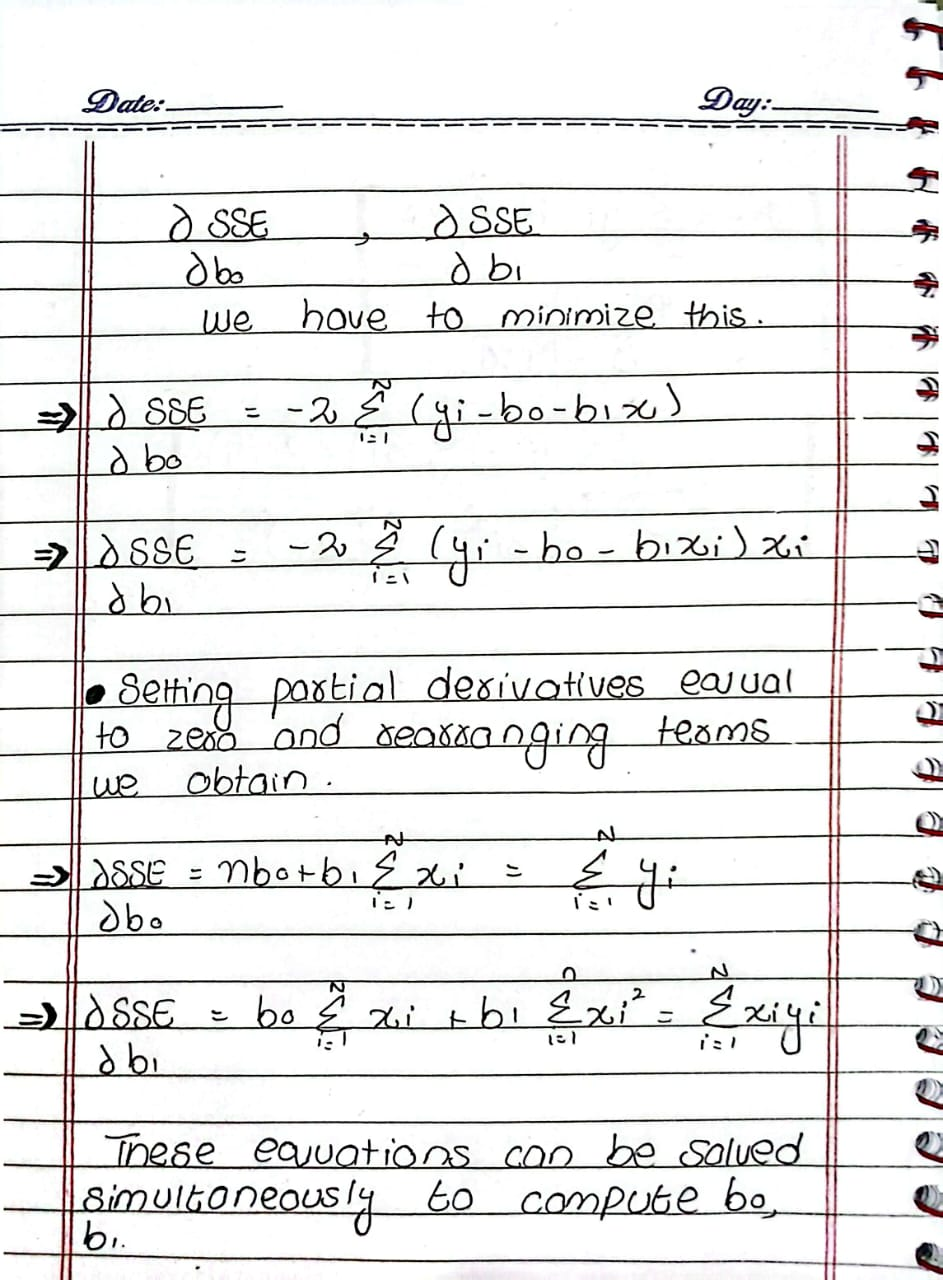 Date: Day:
∂ SSE , ∂ SSE
∂b0 ∂ b1
we have to minimize this.
⇒ ∂ SSE = -2 N Σ i=1 (yi - b0 - b1x)
∂ b0
⇒ ∂SSE = -2 N Σ i=1 (yi - b0 - b1xi) xi
∂ b1
• Setting partial derivatives equal
to zero and rearranging terms
we obtain.
⇒ ∂SSE = nb0 + b1 N Σ i=1 xi = N Σ i=1 yi
∂b0
⇒ ∂SSE = b0 N Σ i=1 xi + b1 n Σ i=1 xi² = N Σ i=1 xiyi
∂ b1
These equations can be solved
simultaneously to compute b0,
b1.